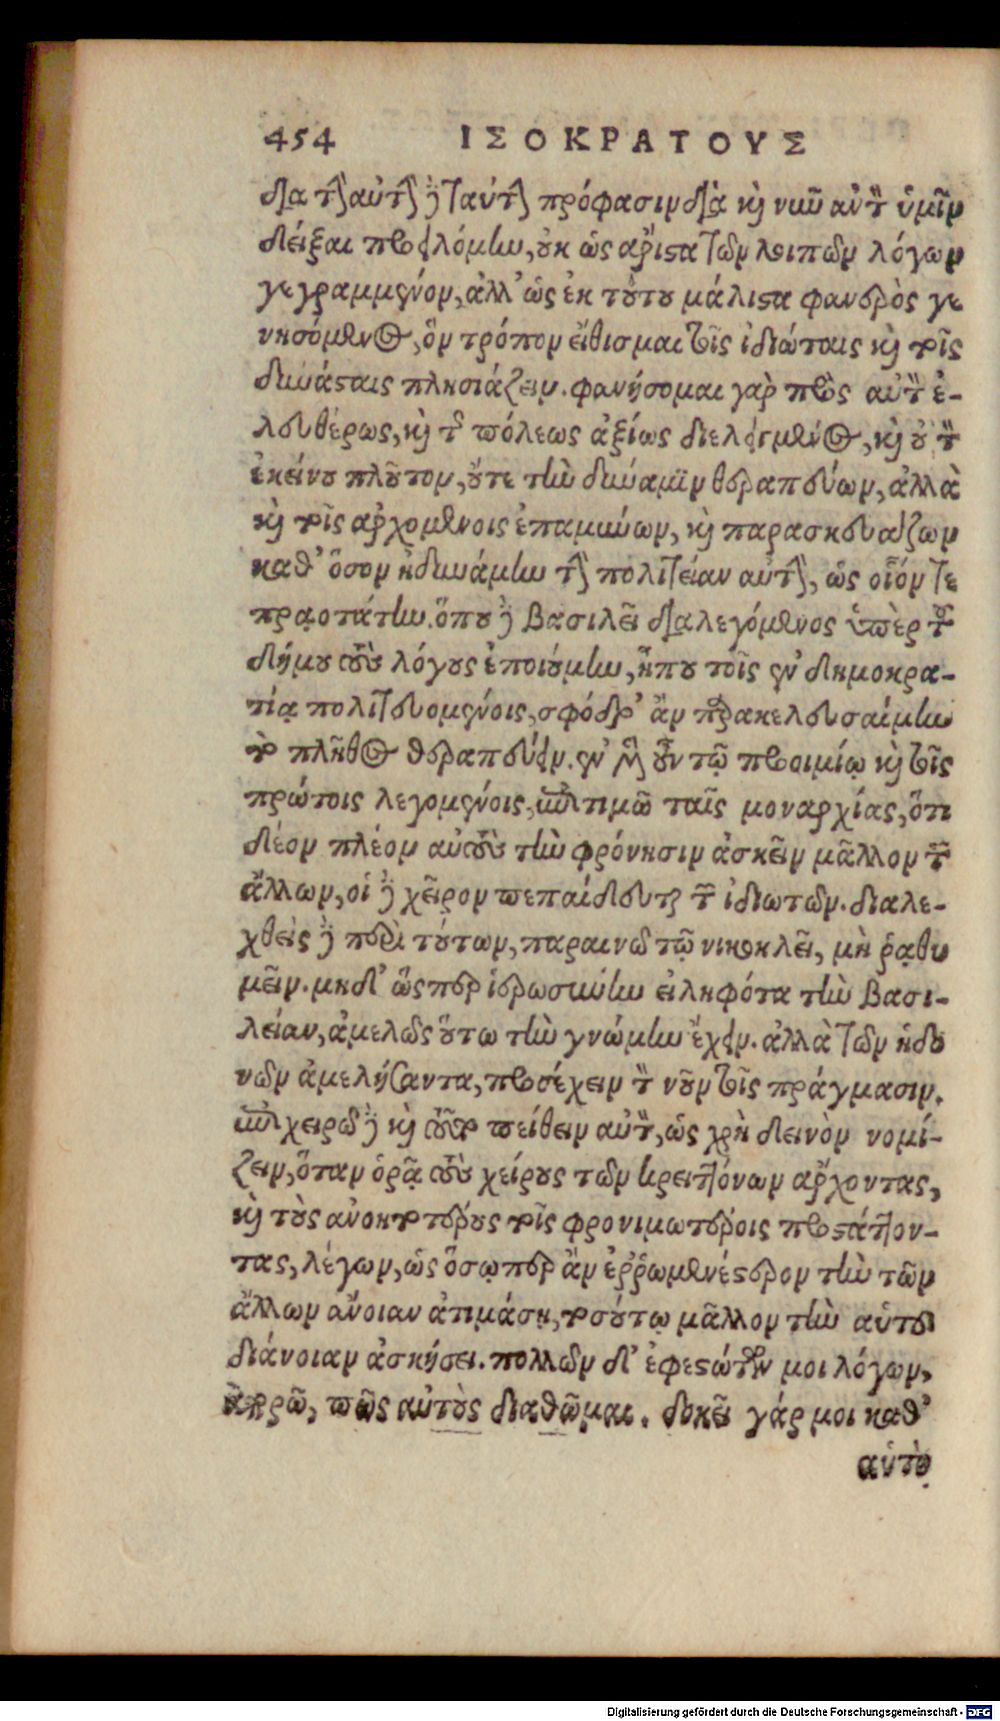 454 ΙΣΟΚΡΑΤΟΥΣ
διὰ τὴν αὐτὴν δὲ ταύτην πρόφασιν διὰ καὶ νῦν αὐτὸν ὑμῖν
δεῖξαι προειλόμην, οὐκ ὡς ἄριστα τῶν λοιπῶν λόγων
γεγραμμένον, ἀλλ' ὡς ἐκ τούτου μάλιστα φανερὸς γε
νησόμενος, ὃν τρόπον εἴθισμαι τοῖς ἰδιώταις καὶ τοῖς
δυνάσταις πλησιάζειν. φανήσομαι γὰρ πρὸς αὐτὸν ἐ-
λευθέρως, καὶ τῆς πόλεως ἀξίως διειλεγμένος, καὶ οὐ τὸν
ἐκείνου πλοῦτον, οὔτε τὴν δύναμιν θεραπεύων, ἀλλὰ
καὶ τοῖς ἀρχομένοις ἐπαμύνων, καὶ παρασκευάζων
καθ' ὅσον ἠδυνάμην τὴν πολιτείαν αὐτὴν, ὡς οἷόν τε
πραοτάτην. ὅπου δὲ βασιλεῖ διαλεγόμενος ὑπὲρ τοῦ
δήμου τοὺς λόγους ἐποιούμην, ἦπου τοῖς ἐν δημοκρα-
τίᾳ πολιτευομένοις, σφόδρ' ἂν παρακελευσαίμην
τὸ πλῆθος θεραπεύειν. ἐν μὲν οὖν τῷ προοιμίῳ καὶ τοῖς
πρώτοις λεγομένοις, ἐπιτιμῶ ταῖς μοναρχίας, ὅτι
δέον πλέον αὐτοὺς τὴν φρόνησιν ἀσκεῖν μᾶλλον τῶν
ἄλλων, οἱ δὲ χεῖρον πεπαίδευνται τῶν ἰδιωτῶν. διαλε-
χθεὶς δὲ περὶ τούτων, παραινῶ τῷ νικοκλεῖ, μὴ ῥᾳθυ
μεῖν. μηδ' ὥσπερ ἱερωσύνην εἰληφότα τὴν βασι-
λείαν, ἀμελῶς οὕτω τὴν γνώμην ἔχειν. ἀλλὰ τῶν ἡδο
νῶν ἀμελήσαντα, προσέχειν τὸν νοῦν τοῖς πράγμασιν.
ἐπιχειρῶ δὲ καὶ τοῦτο πείθειν αὐτὸν, ὡς χρὴ δεινὸν νομί-
ζειν, ὅταν ὁρᾷ τοὺς χείρους τῶν κρειττόνων ἄρχοντας,
καὶ τοὺς ἀνοητοτέρους τοῖς φρονιμωτέροις προστάττον-
τας, λέγων, ὡς ὅσῳπερ ἂν ἐῤῥωμενέστερον τὴν τῶν
ἄλλων ἄνοιαν ἀτιμάσῃ, τοσούτῳ μᾶλλον τὴν αὑτοῦ
διάνοιαν ἀσκήσει. πολλῶν δ' ἐφεστώτων μοι λόγων,
ἀπορῶ, πῶς αὐτοὺς διαθῶμαι. δοκεῖ γάρ μοι καθ'
αὑτὸ
Digitalisierung gefördert durch die Deutsche Forschungsgemeinschaft - DFG